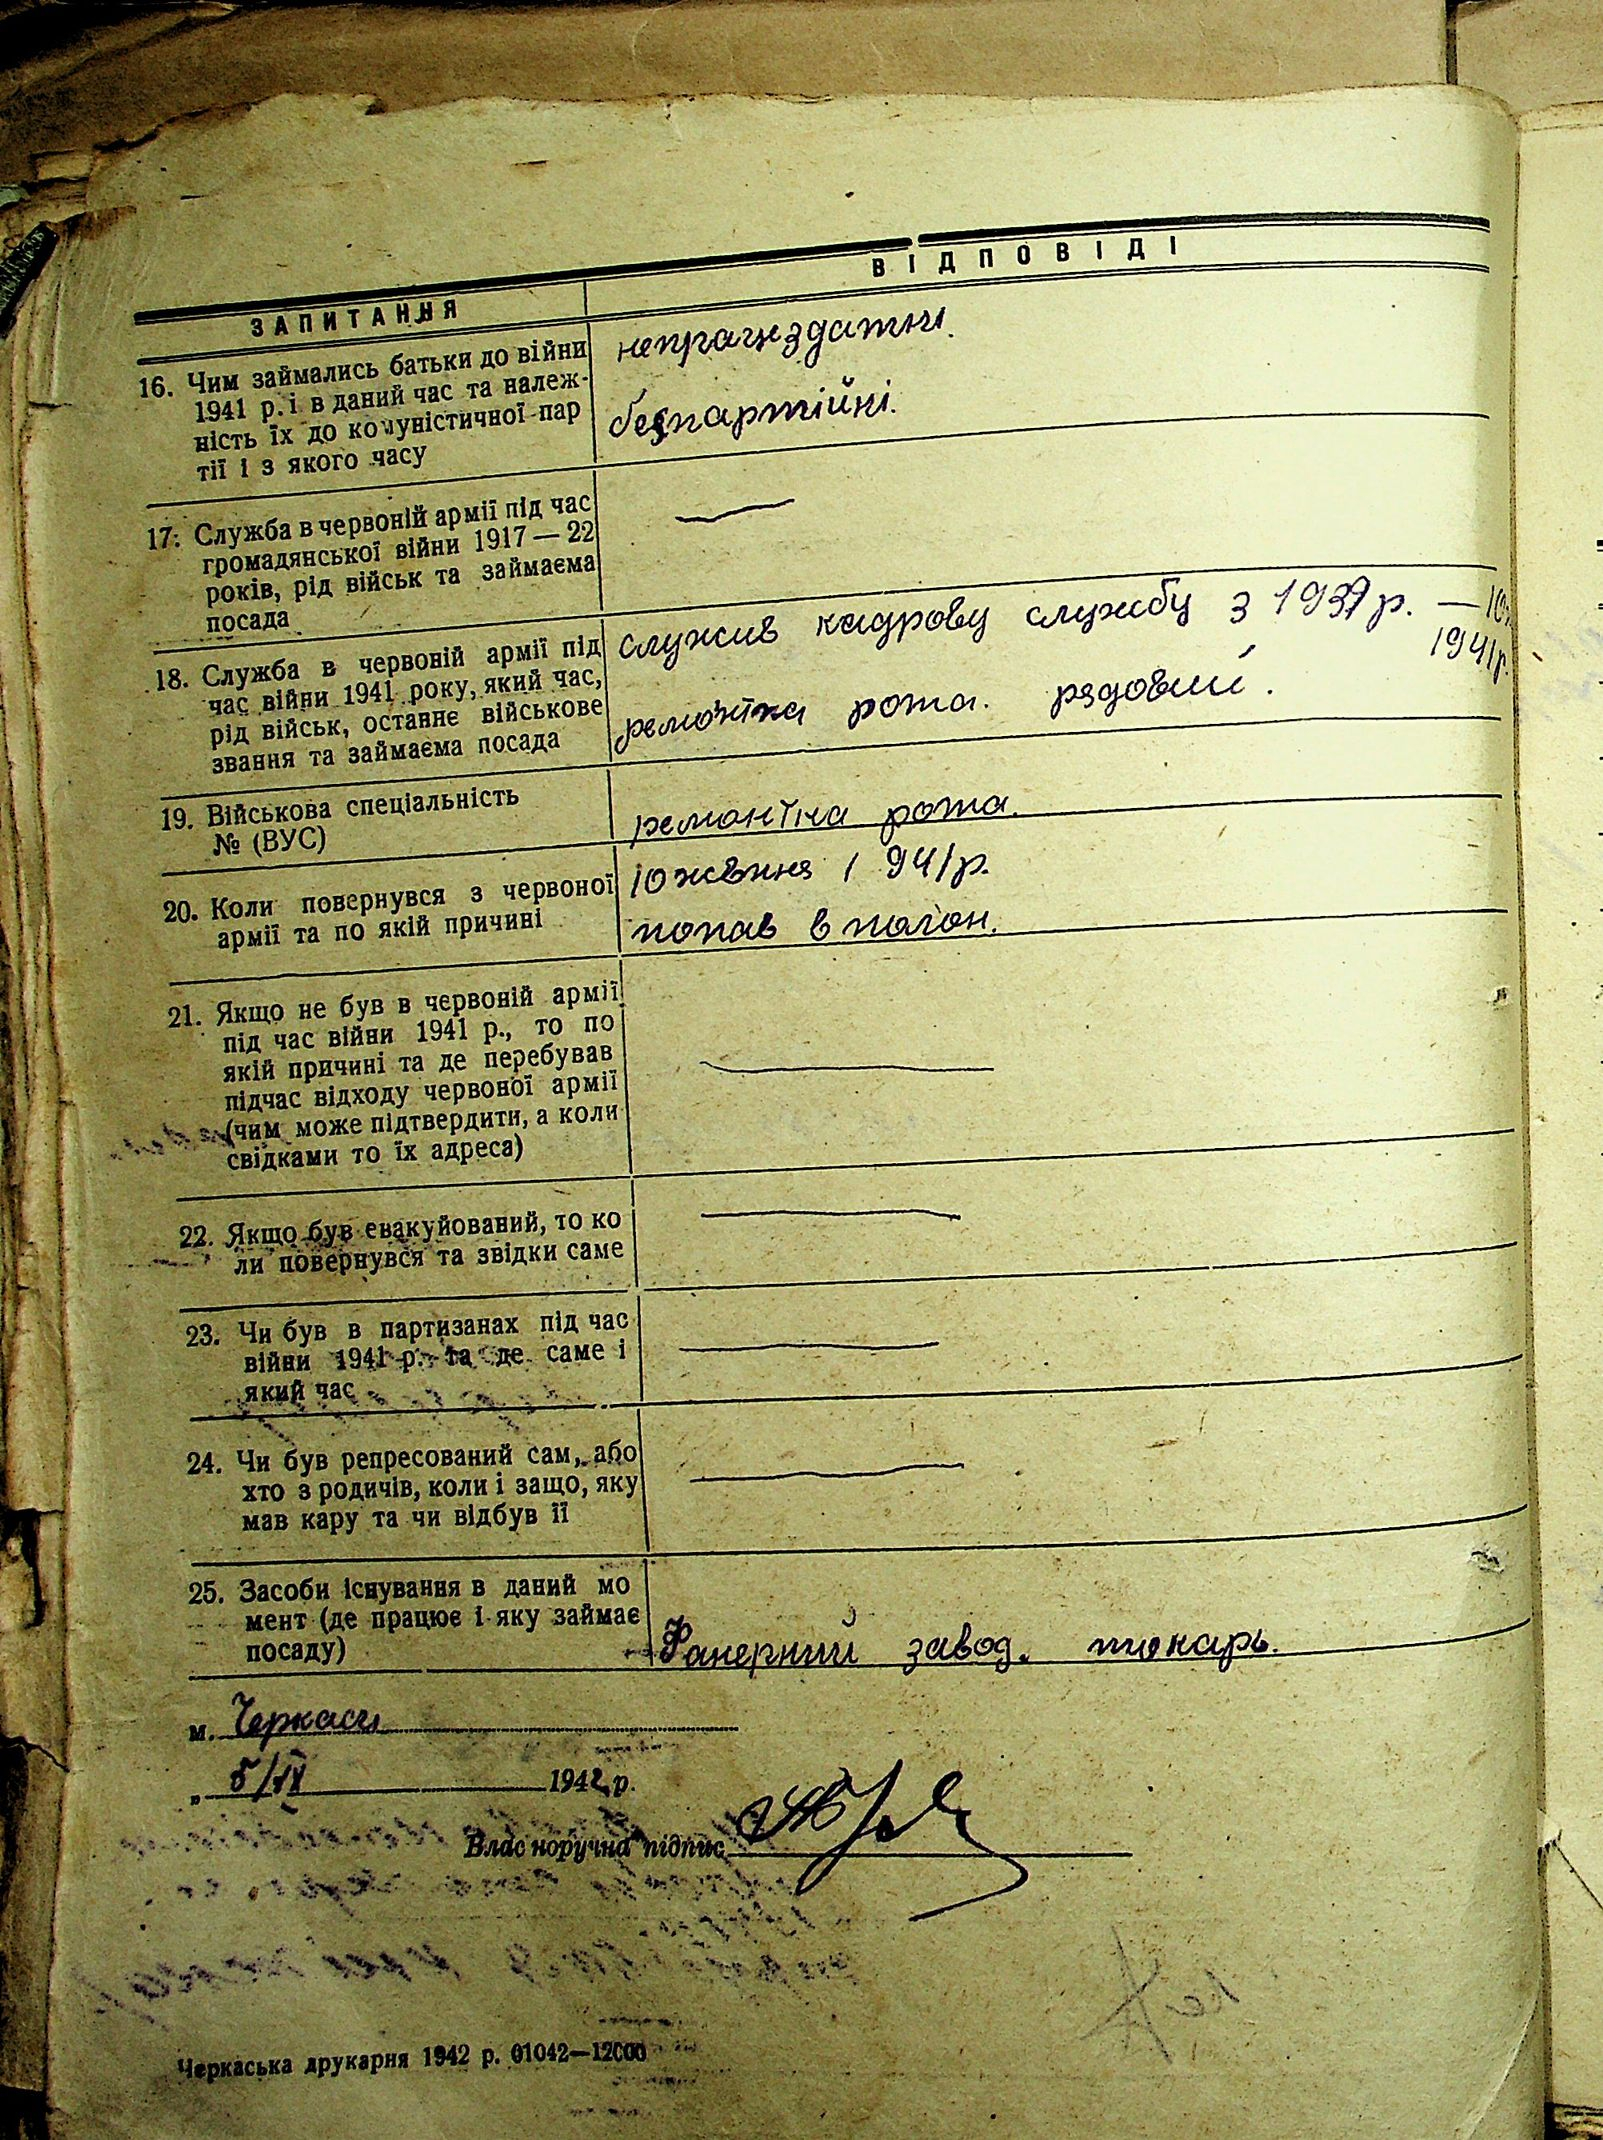 ЗАПИТАННЯ
ВІДПОВІДІ
16. Чим займались батьки до війни
1941 р. і в даний час та належ-
ність їх до комуністичної пар
тії і з якого часу
непрацездатні.
безпартійні.
17. Служба в червоній армії під час
громадянської війни 1917 — 22
років, рід військ та займаєма
посада
18. Служба в червоній армії під
час війни 1941 року, який час,
рід військ, останнє військове
звання та займаєма посада
служив кадрову службу з 1939 р. — 10
1941р.
ремонтна рота. рядовий.
19. Військова спеціальність
№ (ВУС)
ремонтна рота.
20. Коли повернувся з червоної
армії та по якій причині
10 жовтня 1941р.
попав в полон.
21. Якщо не був в червоній армії
під час війни 1941 р., то по
якій причині та де перебував
підчас відходу червоної армії
(чим може підтвердити, а коли
свідками то їх адреса)
22. Якщо був евакуйований, то ко
ли повернувся та звідки саме
23. Чи був в партизанах під час
війни 1941 р. та де саме і
який час
24. Чи був репресований сам, або
хто з родичів, коли і защо, яку
мав кару та чи відбув її
25. Засоби існування в даний мо
мент (де працює і яку займає
посаду)
Фанерний завод. токарь.
м. Черкаси
„ 5/IX 1942 р.
Влас норучна підпис
Черкаська друкарня 1942 р. 01042—12000